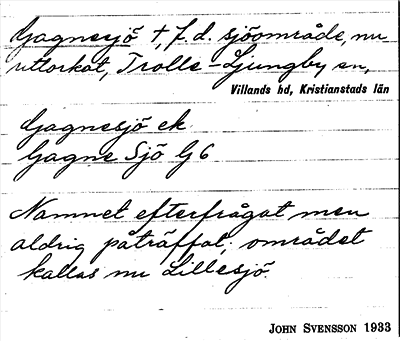 Gagnesjö †, f.d. sjöområde, nu
uttorkat, Trolle-Ljungby sn,
Villands hd, Kristianstads län
Gagnesjö ek.
Gagne Sjö G6
Namnet efterfrågat men
aldrig påträffat; området
kallas nu Lillesjö.
JOHN SVENSSON 1933